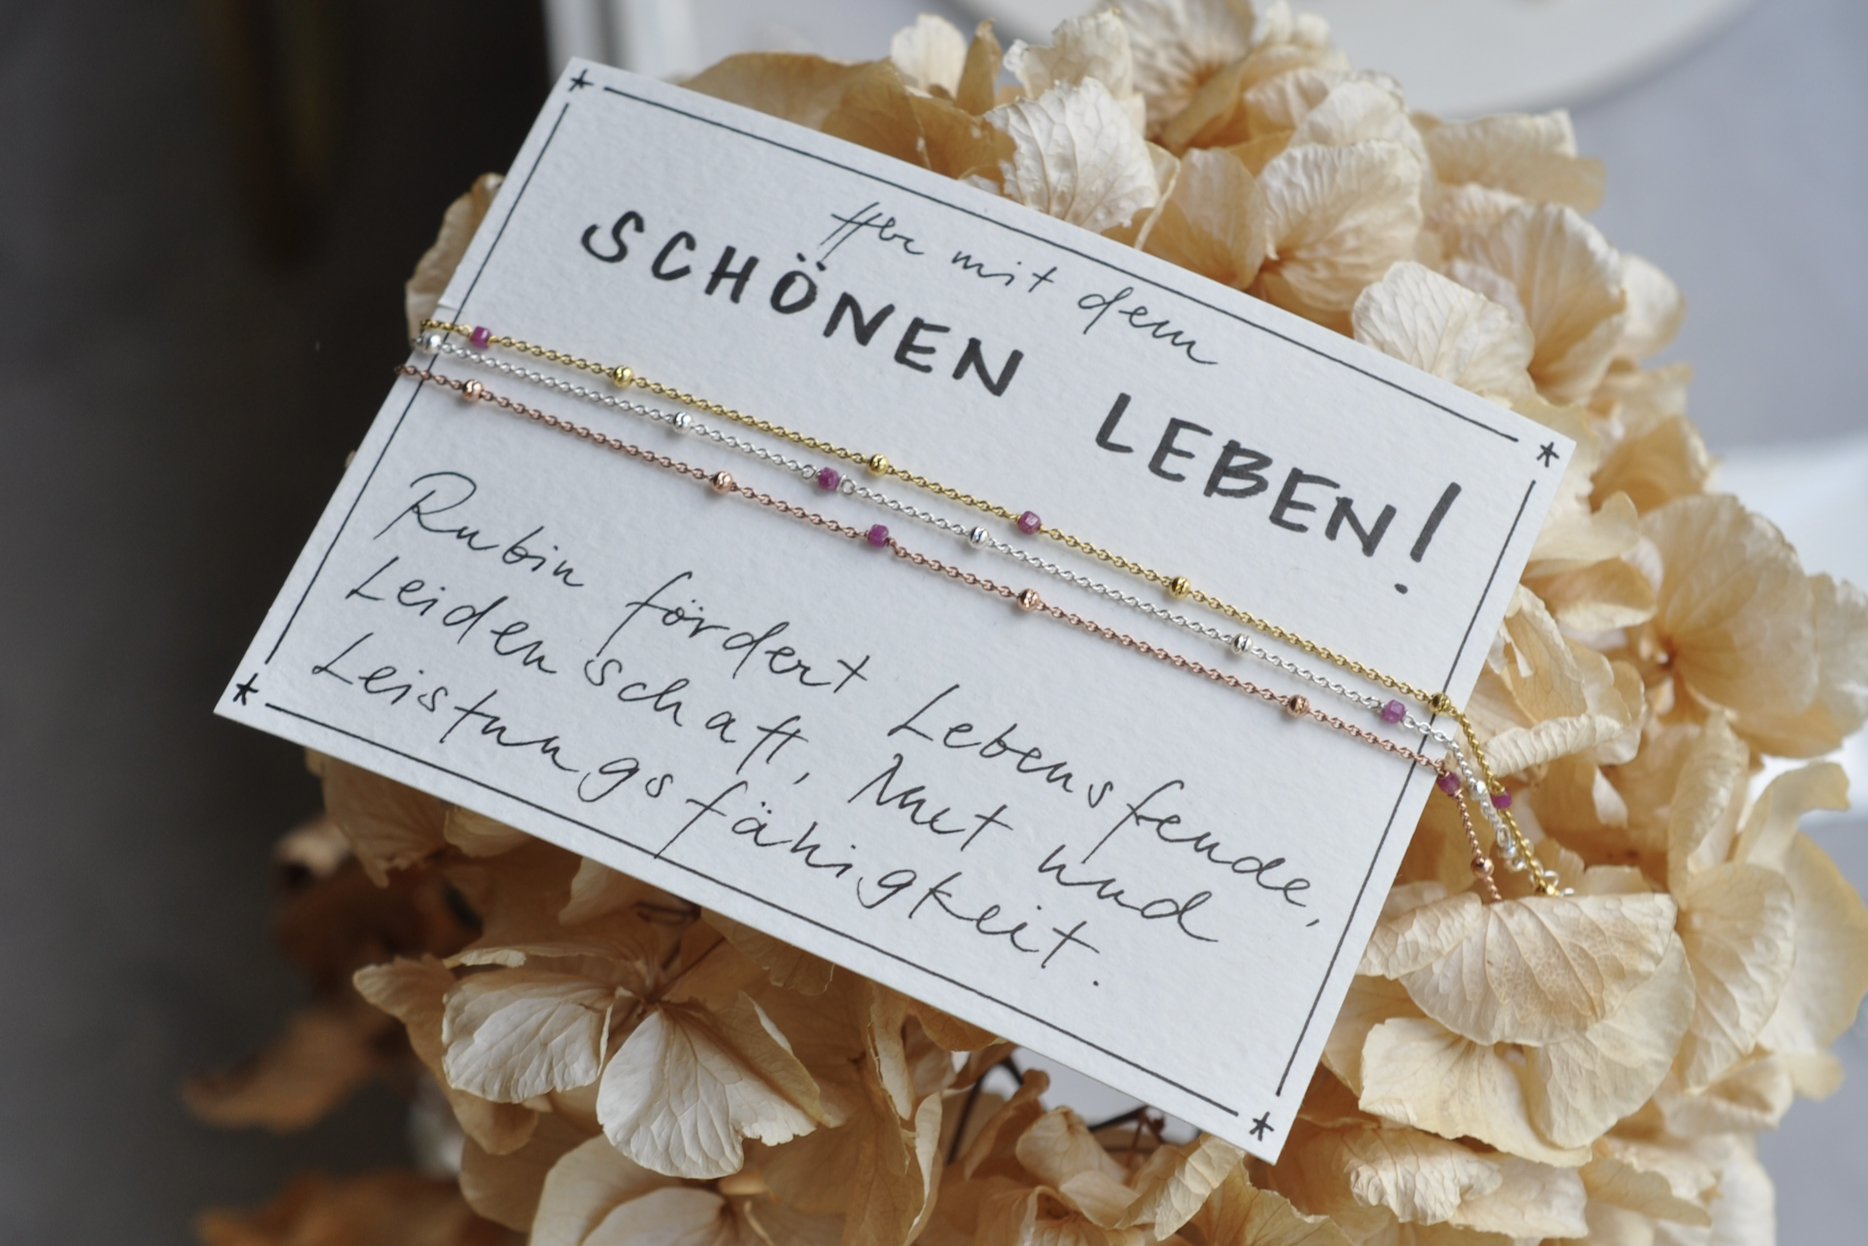 Her mit dem
SCHÖNEN LEBEN!
Rubin fördert Lebensfeude,
Leidenschaft, Mut und
Leistungsfähigkeit.